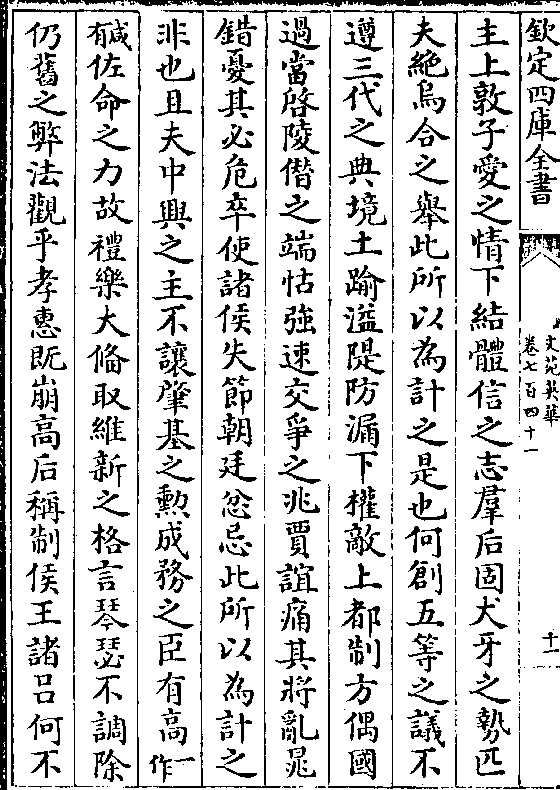 欽定四庫全書
文苑英華
卷七百四十一
十一
主上敦子愛之情下結體信之志羣后固犬牙之勢匹
夫絶烏合之舉此所以為計之是也何創五等之議不
遵三代之典境土踰溢隄防漏下權敵上都制方偶國
過當啓陵僭之端怙強速交爭之兆賈誼痛其將亂鼂
錯憂其必危卒使諸侯失節朝廷忿忌此所以為計之
非也且夫中興之主不讓肇基之勲成務之臣有高一作
碱佐命之力故禮樂大偹取維新之格言琴瑟不調除
仍舊之弊法觀乎孝惠既崩高后稱制侯王諸吕何不